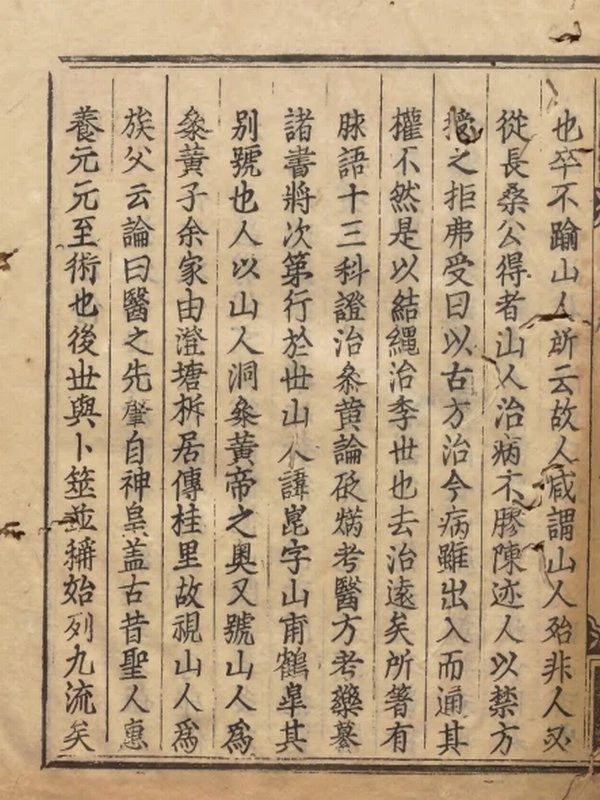 也卒不踰山人所云故人咸謂山人殆非人必
從長桑公得者山人治病不膠陳迹人以禁方
授之拒弗受曰以古方治今病雖出入而通其
權不然是以結繩治季世也去治遠矣所著有
脉語十三科證治叅黄論砭焫考醫方考藥纂
諸書將次第行於世山人諱崑字山甫鶴皐其
别號也人以山人洞叅黄帝之奥又號山人為
叅黄子余家由澄塘柝居傳桂里故視山人為
族父云論曰醫之先肇自神皇盖古昔聖人惠
養元元至術也後世與卜筮並稱始列九流矣